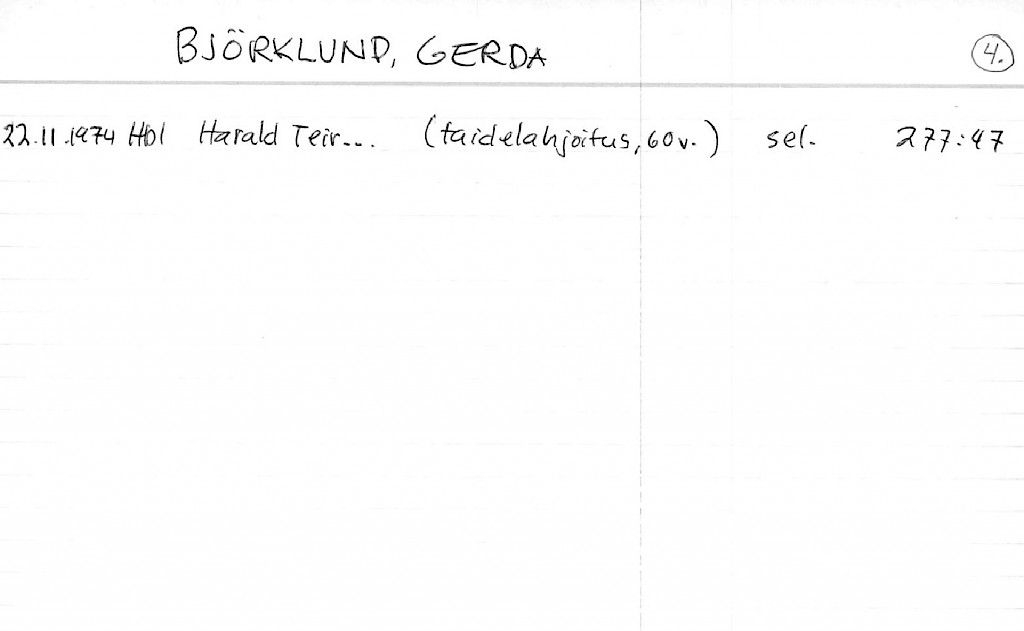 BJÖRKLUND, GERDA 4.
22.11.1974 Hbl Harald Teir... (taidelahjoitus, 60v.) sel. 277:47